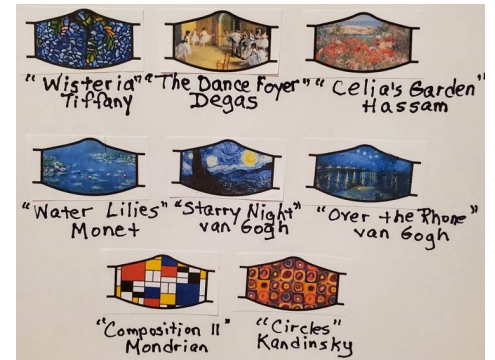 "Wisteria"
Tiffany
"The Dance Foyer"
Degas
"Celia's Garden"
Hassam
"Water Lilies"
Monet
"Starry Night"
van Gogh
"Over the Rhone"
van Gogh
"Composition II"
Mondrian
"Circles"
Kandinsky